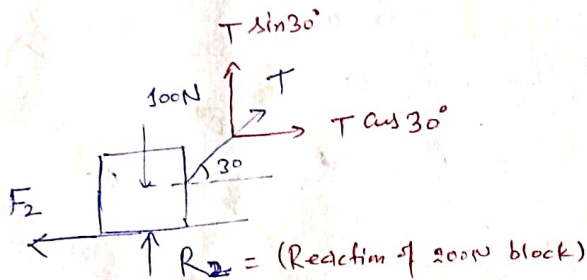 T sin30°
100N
T
T cos 30°
30
F2
R2 = (Reaction of 200N block)